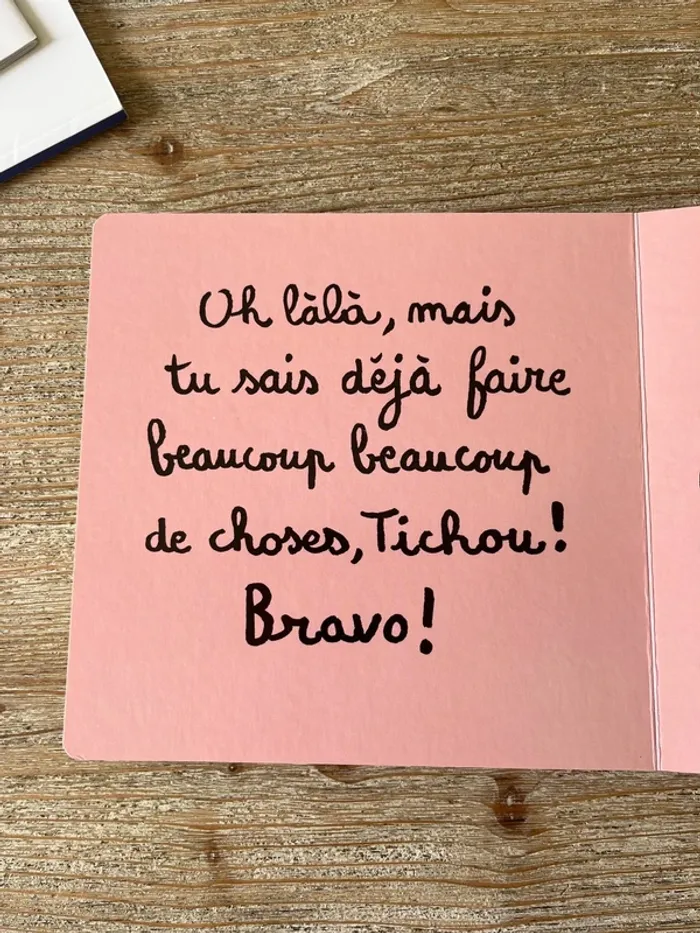 Oh làlà, mais
tu sais déjà faire
beaucoup beaucoup
de choses, Tichou!
Bravo!